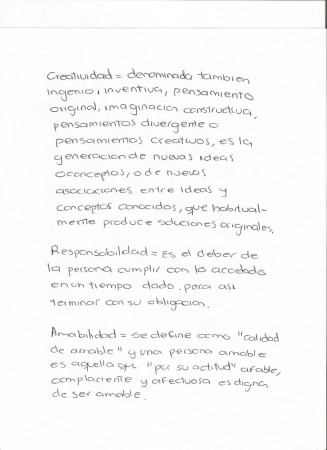 Creatividad = denominada tambien
ingenio, inventiva, pensamiento
original, imaginacion constructiva,
pensamientos divergente o
pensamientos creativos, es la
generacion de nuevas ideas
o conceptos, o de nuevas
asociaciones entre ideas y
conceptos conocidos, que habitual-
mente produce soluciones originales.
Responsabilidad = Es el deber de
la persona cumplir con lo acordado
en un tiempo dado. para asi
terminar con su obligacion.
Amabilidad = se define como "calidad
de amable" y una persona amable
es aquella que "por su actitud" afable,
complaciente y afectuosa es digna
de ser amable.